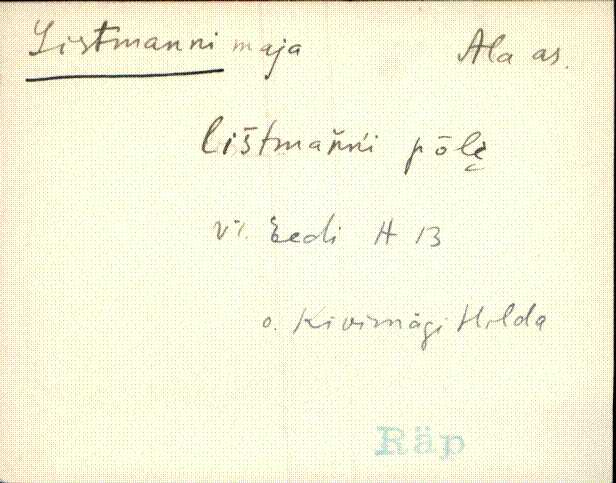 Listmanni maja Ala as.
lištmańńi põlε
vt. Eedi H 13
o. Kivimägi Hilda
Räp